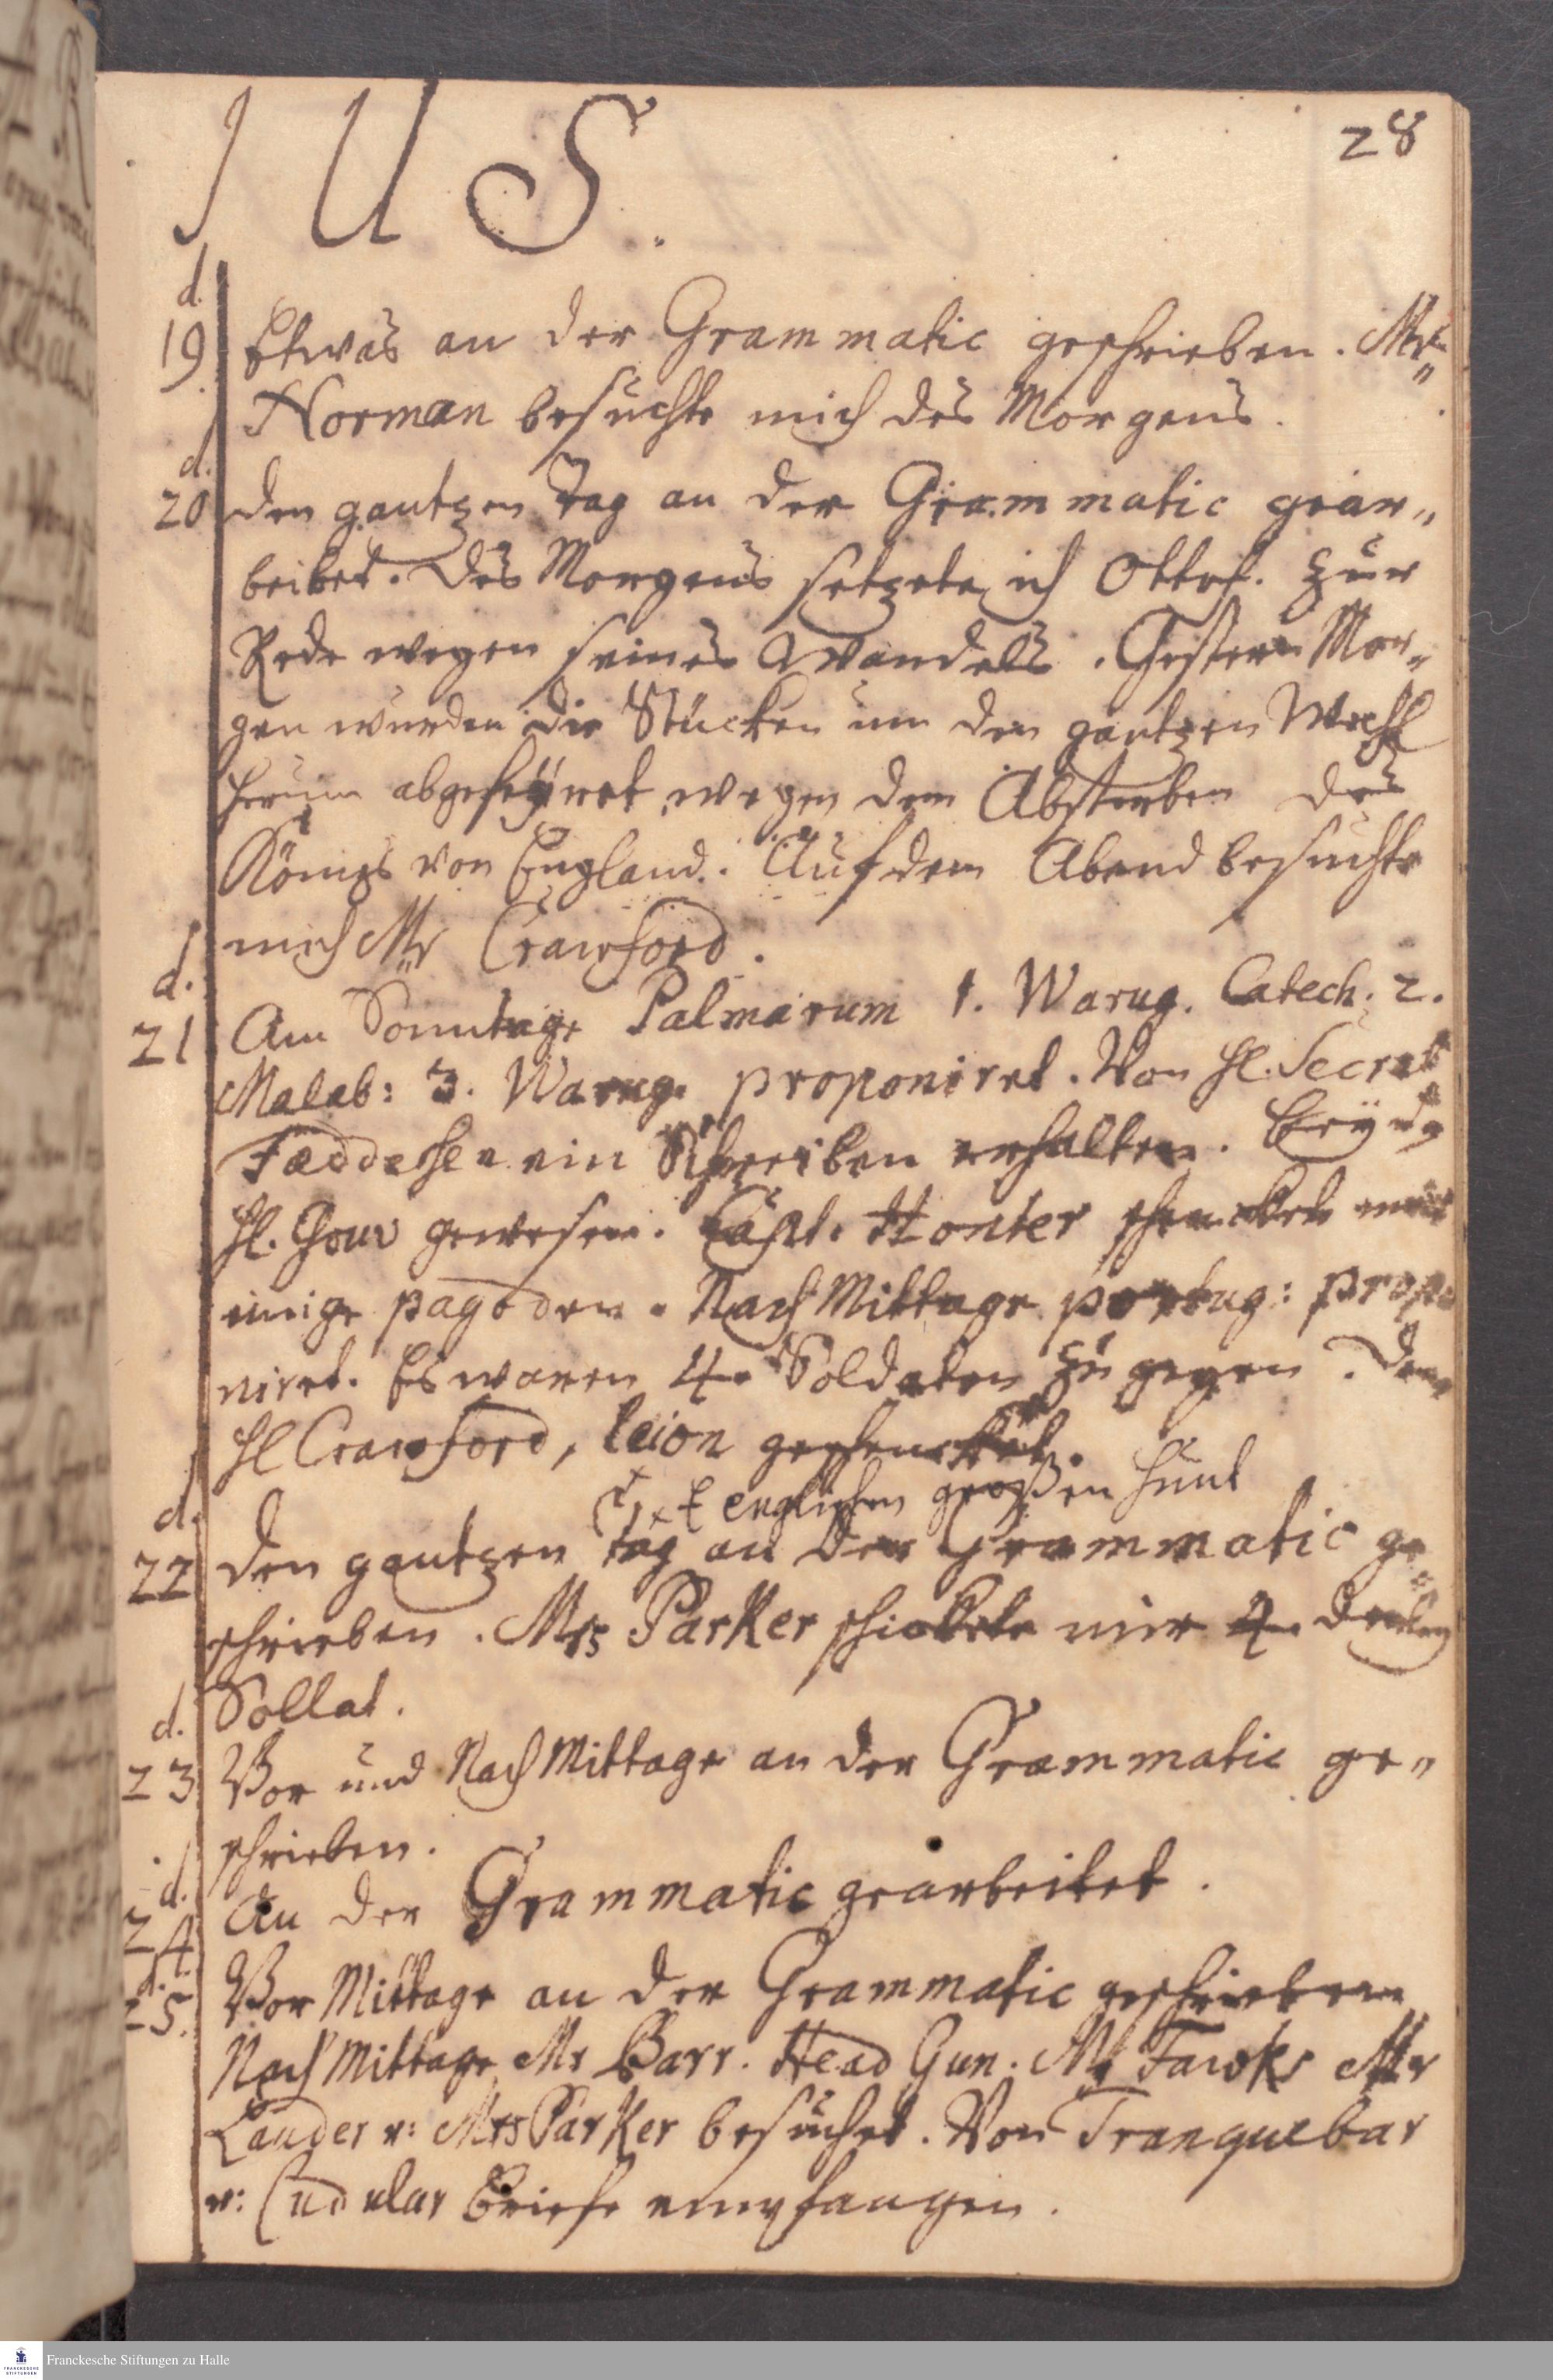 28
I U S.
d.
19 Etwas an der Grammatic geschrieben. Mr.
Norman besuchte mich des Morgens.
d.
20 den gantzen Tag an der Grammatic gear„
beitet. Des Morgens setzete ich Ottof. zur
Rede wegen seines Wandels. Gestern Mor„
gen wurden die Stücken um den gantzen Wall
herum abgefeyret wegen dem Absterben des
Königs von England. Auf dem Abend besuchte
mich Mr Crawford.
d.
21 Am Sonntage Palmarum 1. Warug. Catech. 2.
Malab: 3. Warug. proponiret. Von H. Secret
Fæddersen ein Schreiben erhalten. Beym
H. Gouv gewesen. Capt. Honter schenckte mir
einige pagoden. Nach Mittage portug: propo
niret. Es waren 4. Soldaten zu gegen. Dem
H Crawford, leion geschencket.
englischen großen Hund
d.
22 den gantzen tag an der Grammatic ge
schrieben. Mrs Parker schickete mir 4.
Sollat.
d.
23 Vor und Nach Mittage an der Grammatic ge„
schrieben.
d.
24 An der Grammatic gearbeitet.
d.
25. Vor Mittage an der Grammatic geschrieben
Nach Mittage Mr Barr. Head Gun. Mr Fawks Mr
Lander u: Mrs Parker besuchet. Von Tranquebar
u: Cudular Briefe empfangen.
FRANCKESCHE
STIFTUNGEN
Franckesche Stiftungen zu Halle